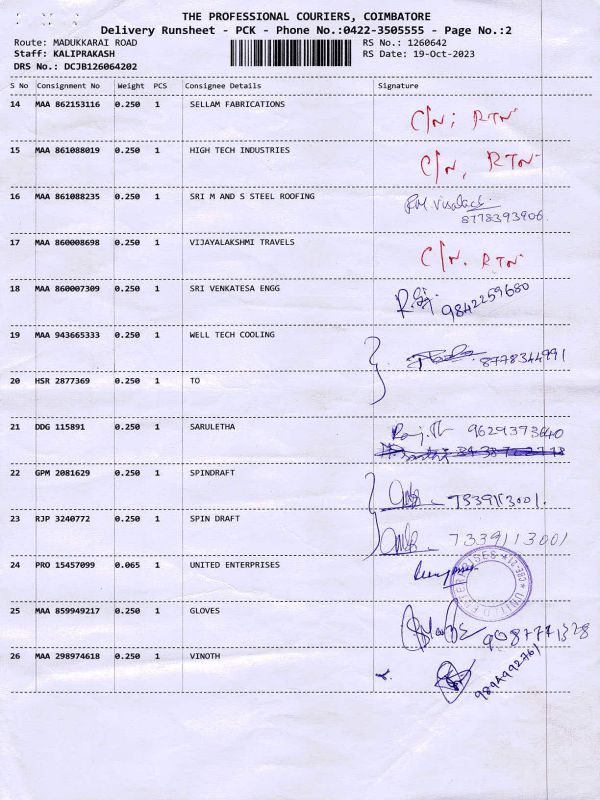 THE PROFESSIONAL COURIERS, COIMBATORE
Delivery Runsheet - PCK - Phone No.:0422-3505555 - Page No.:2
Route: MADUKKARAI ROAD RS No.: 1260642
Staff: KALIPRAKASH RS Date: 19-Oct-2023
DRS No.: DCJB126064202
S No Consignment No Weight PCS Consignee Details Signature
14 MAA 862153116 0.250 1 SELLAM FABRICATIONS C/N; RTN
15 MAA 861088019 0.250 1 HIGH TECH INDUSTRIES C/N, RTN
16 MAA 861088235 0.250 1 SRI M AND S STEEL ROOFING
8778393906.
17 MAA 860008698 0.250 1 VIJAYALAKSHMI TRAVELS C/N. RTN
18 MAA 860007309 0.250 1 SRI VENKATESA ENGG 9842259680
19 MAA 943665333 0.250 1 WELL TECH COOLING 8778344991
20 HSR 2877369 0.250 1 TO
21 DDG 115891 0.250 1 SARULETHA 9629373640
22 GPM 2081629 0.250 1 SPINDRAFT 7339113001.
23 RJP 3240772 0.250 1 SPIN DRAFT 7339113001
24 PRO 15457099 0.065 1 UNITED ENTERPRISES
25 MAA 859949217 0.250 1 GLOVES 9087771328
26 MAA 298974618 0.250 1 VINOTH 9894992761